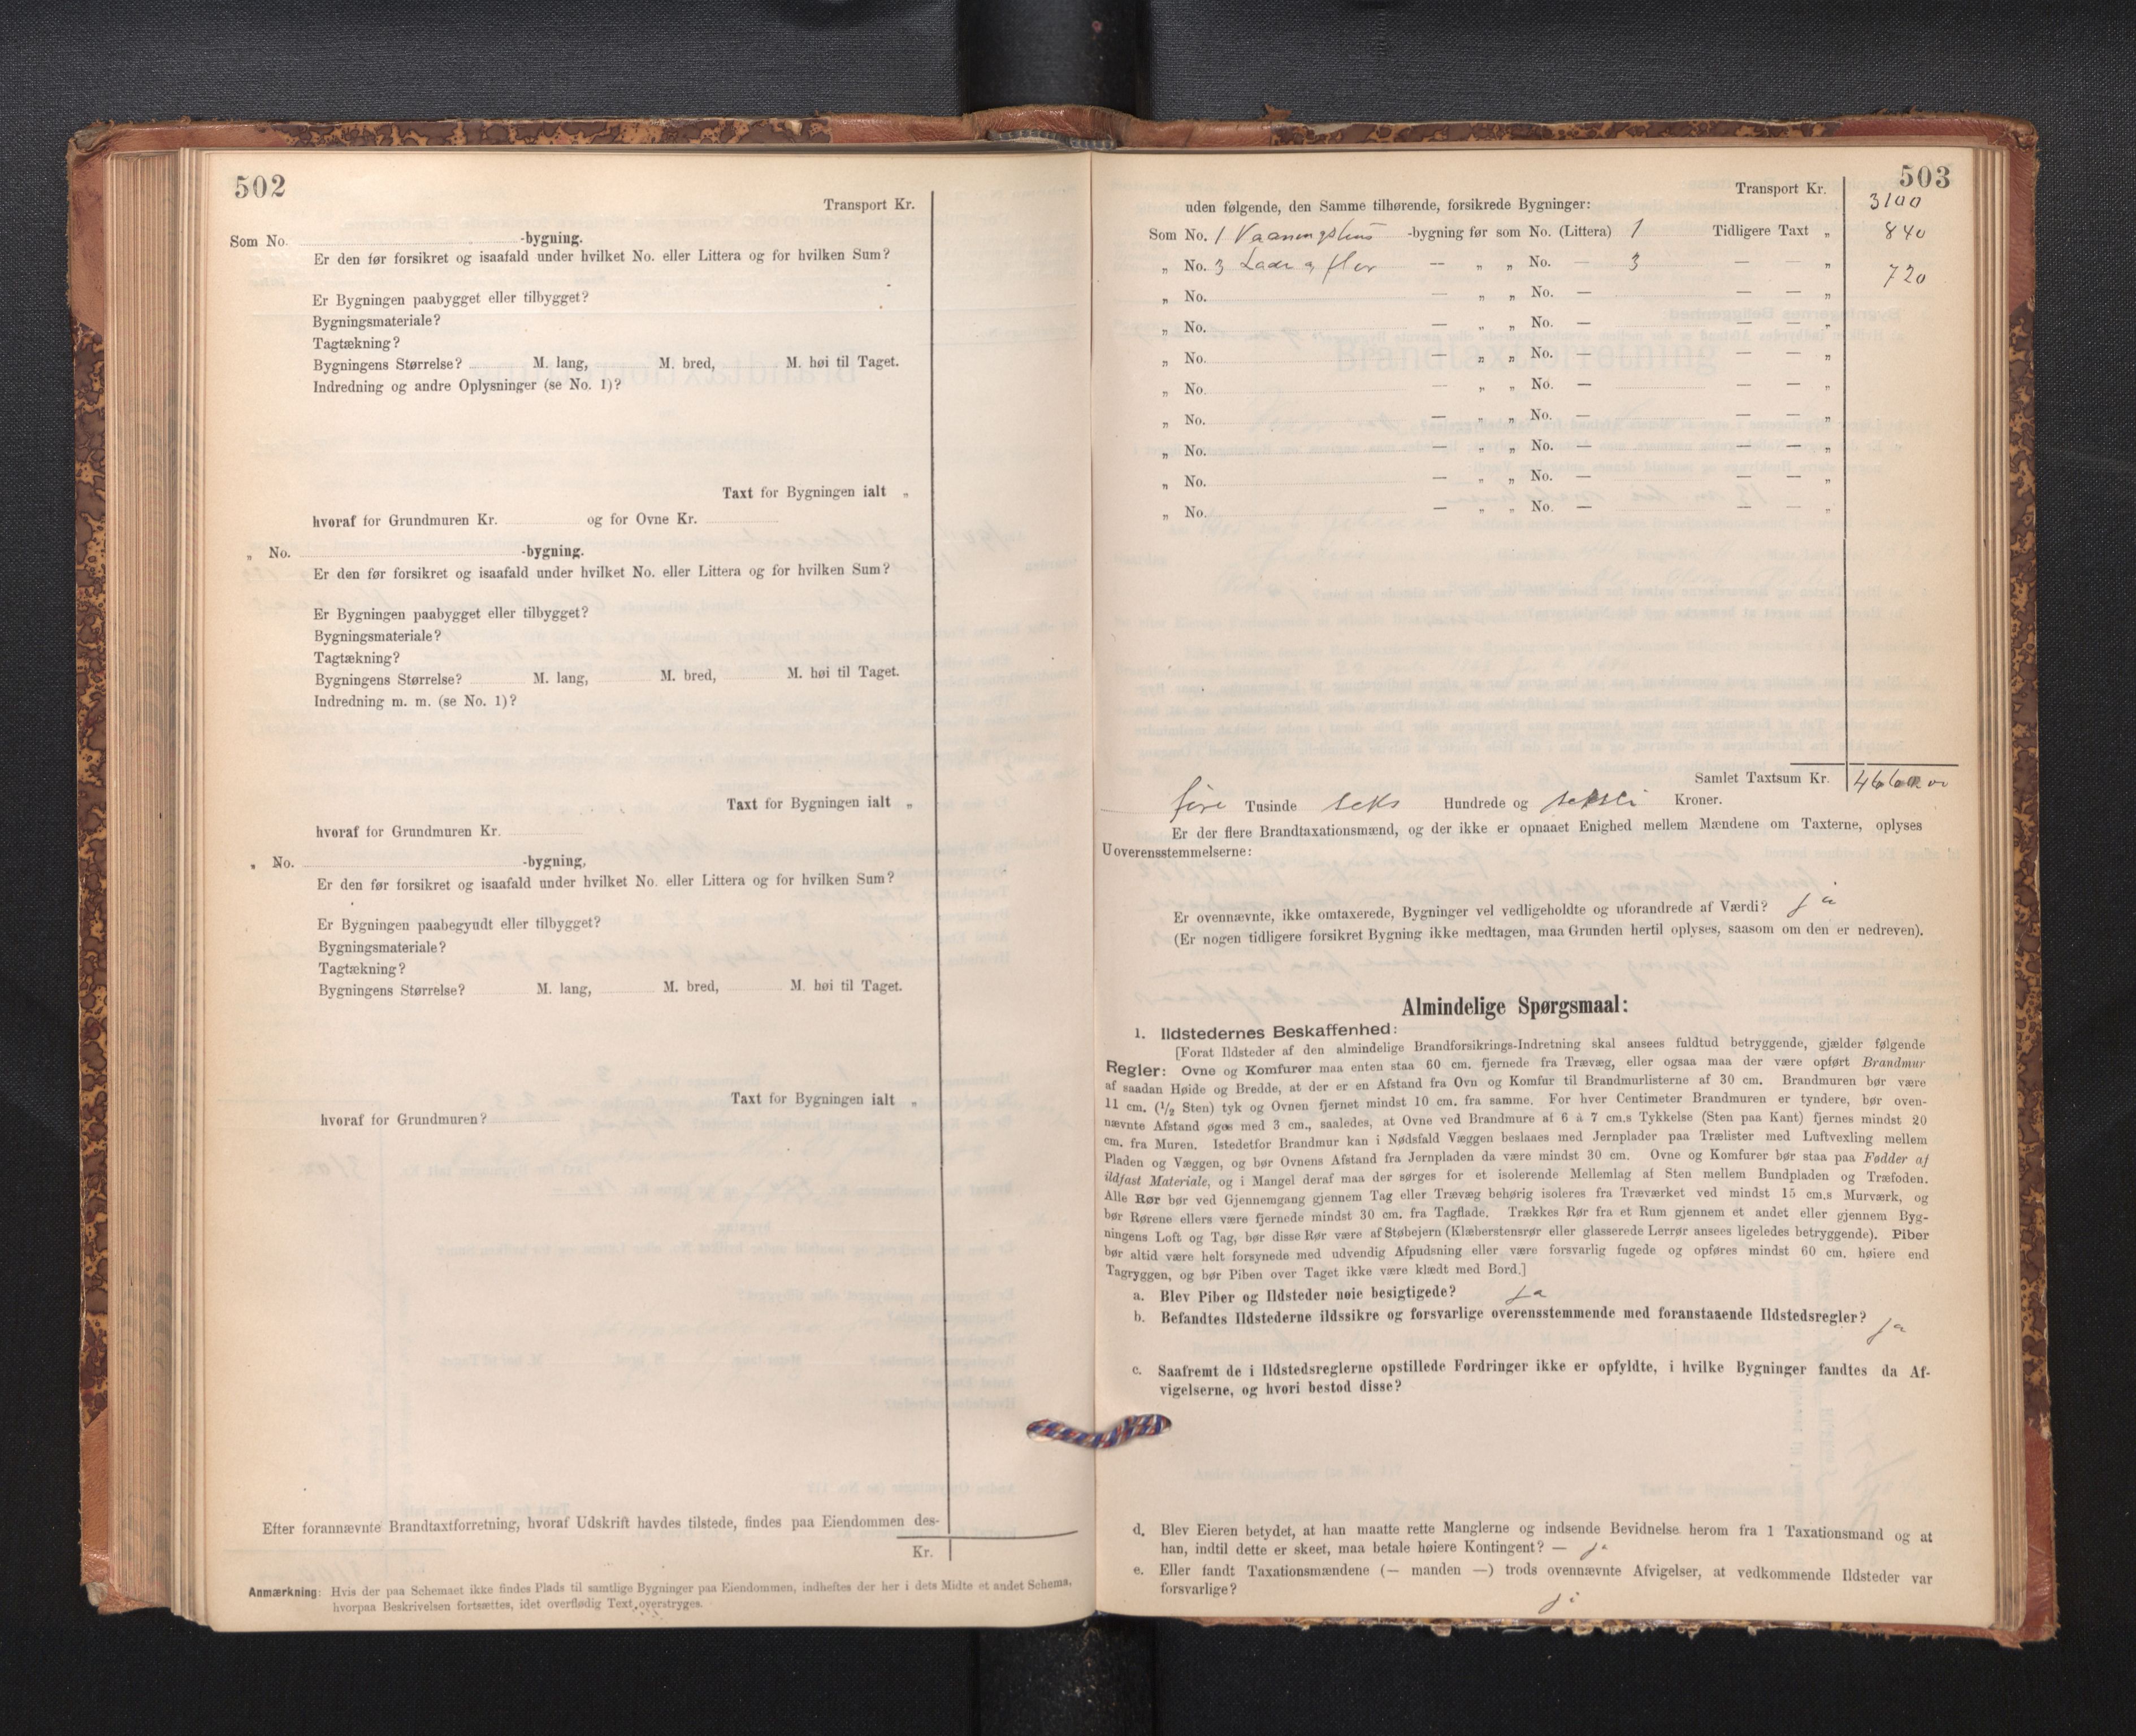 502
Transport Kr.
Som No. -bygning.
Er den før forsikret og isaafald under hvilket No. eller Littera og for hvilken Sum?
Er Bygningen paabygget eller tilbygget?
Bygningsmateriale?
Tagtækning?
Bygningens Størrelse? M. lang, M. bred, M. høi til Taget.
Indredning og andre Oplysninger (se No. 1)?
Taxt for Bygningen ialt „
hvoraf for Grundmuren Kr. og for Ovne Kr.
„ No. -bygning.
Er den før forsikret og isaafald under hvilket No. eller Littera og for hvilken Sum?
Er Bygningen paabygget eller tilbygget?
Bygningsmateriale?
Tagtækning?
Bygningens Størrelse? M. lang, M. bred, M. høi til Taget.
Indredning m. m. (se No. 1)?
Taxt for Bygningen ialt „
hvoraf for Grundmuren Kr.
„ No. -bygning,
Er den før forsikret og isaafald under hvilket No. eller Littera og for hvilken Sum?
Er Bygningen paabegyndt eller tilbygget?
Bygningsmateriale?
Tagtækning?
Bygningens Størrelse? M. lang, M. bred, M. høi til Taget.
Taxt for Bygningen ialt „
hvoraf for Grundmuren?
Efter forannævnte Brandtaxtforretning, hvoraf Udskrift havdes tilstede, findes paa Eiendommen des-
Kr.
Anmærkning: Hvis der paa Schemaet ikke findes Plads til samtlige Bygninger paa Eiendommen, indheftes der her i dets Midte et andet Schema,
hvorpaa Beskrivelsen fortsættes, idet overflødig Text overstryges.
503
Transport Kr. 3100
uden følgende, den Samme tilhørende, forsikrede Bygninger:
Som No. 1 Vaaningshus -bygning før som No. (Littera) 1 Tidligere Taxt „ 840
„ No. 3 Lade og flor — „ „ No. — 3 — — „ 720
„ No. — „ „ No. — — — „
„ No. — „ „ No. — — — „
„ No. — „ „ No. — — — „
„ No. — „ „ No. — — — „
„ No. — „ „ No. — — — „
„ No. — „ „ No. — — — „
„ No. — „ „ No. — — — „
„ No. — „ „ No. — — — „
Samlet Taxtsum Kr. 4660 00
fire Tusinde seks Hundrede og seksti Kroner.
Er der flere Brandtaxationsmænd, og der ikke er opnaaet Enighed mellem Mændene om Taxterne, oplyses
Uoverensstemmelserne:
Er ovennævnte, ikke omtaxerede, Bygninger vel vedligeholdte og uforandrede af Værdi? ja
(Er nogen tidligere forsikret Bygning ikke medtagen, maa Grunden hertil oplyses, saasom om den er nedreven).
Almindelige Spørgsmaal:
1. Ildstedernes Beskaffenhed:
[Forat Ildsteder af den almindelige Brandforsikrings-Indretning skal ansees fuldtud betryggende, gjælder følgende
Regler: Ovne og Komfurer maa enten staa 60 cm. fjernede fra Trævæg, eller ogsaa maa der være opført Brandmur
af saadan Høide og Bredde, at der er en Afstand fra Ovn og Komfur til Brandmurlisterne af 30 cm. Brandmuren bør være
11 cm. (1/2 Sten) tyk og Ovnen fjernet mindst 10 cm. fra samme. For hver Centimeter Brandmuren er tyndere, bør oven-
nævnte Afstand øges med 3 cm., saaledes, at Ovne ved Brandmure af 6 à 7 cm.s Tykkelse (Sten paa Kant) fjernes mindst 20
cm. fra Muren. Istedetfor Brandmur kan i Nødsfald Væggen beslaaes med Jernplader paa Trælister med Luftvexling mellem
Pladen og Væggen, og bør Ovnens Afstand fra Jernpladen da være mindst 30 cm. Ovne og Komfurer bør staa paa Fødder af
ildfast Materiale, og i Mangel deraf maa der sørges for et isolerende Mellemlag af Sten mellem Bundpladen og Træfoden.
Alle Rør bør ved Gjennemgang gjennem Tag eller Trævæg behørig isoleres fra Træværket ved mindst 15 cm.s Murværk, og
bør Rørene ellers være fjernede mindst 30 cm. fra Tagflade. Trækkes Rør fra et Rum gjennem et andet eller gjennem Byg-
ningens Loft og Tag, bør disse Rør være af Støbejern (Klæberstensrør eller glasserede Lerrør ansees ligeledes betryggende). Piber
bør altid være helt forsynede med udvendig Afpudsning eller være forsvarlig fugede og opføres mindst 60 cm. høiere end
Tagryggen, og bør Piben over Taget ikke være klædt med Bord.]
a. Blev Piber og Ildsteder nøie besigtigede? ja
b. Befandtes Ildstederne ildssikre og forsvarlige overensstemmende med foranstaaende Ildstedsregler? ja
c. Saafremt de i Ildstedsreglerne opstillede Fordringer ikke er opfyldte, i hvilke Bygninger fandtes da Af-
vigelserne, og hvori bestod disse?
d. Blev Eieren betydet, at han maatte rette Manglerne og indsende Bevidnelse herom fra 1 Taxationsmand og at
han, indtil dette er skeet, maa betale høiere Kontingent? — ja
e. Eller fandt Taxationsmændene (— manden —) trods ovennævnte Afvigelser, at vedkommende Ildsteder var
forsvarlige? ja